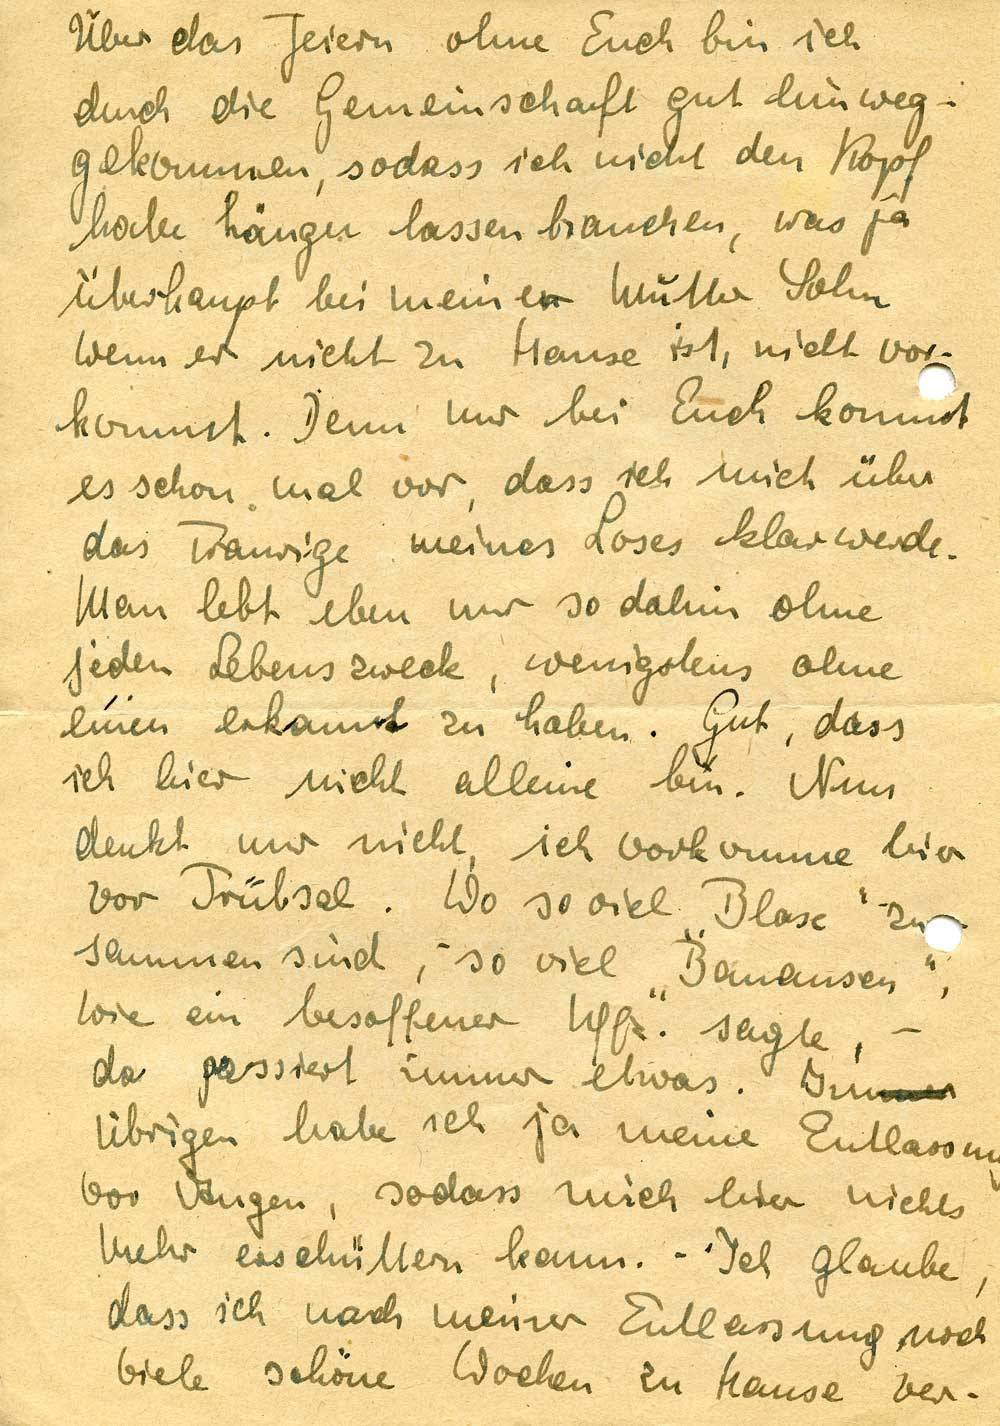 Über das Feiern ohne Euch bin ich
durch die Gemeinschaft gut hinweg-
gekommen, sodass ich nicht den Kopf
habe hängen lassen brauchen, was ja
überhaupt bei meiner Mutter Sohn
wenn er nicht zu Hause ist, nicht vor-
kommt. Denn nur bei Euch kommt
es schon mal vor, dass ich mich über
das Traurige meines Loses klar werde.
Man lebt eben nur so dahin ohne
jeden Lebenszweck, wenigstens ohne
einen erkannt zu haben. Gut, dass
ich hier nicht alleine bin. Nun
denkt nur nicht, ich vorkomme hier
vor Trübsal. Wo so viel „Blase“ zu-
sammen sind, - so viel „Banausen“,
wie ein besoffener Uffz. sagte, -
da passiert immer etwas. Im
Übrigen habe ich ja meine Entlassung
vor Augen, sodass mich hier nichts
mehr erschüttern kann. - Ich glaube,
dass ich nach meiner Entlassung noch
viele schöne Wochen zu Hause ver-